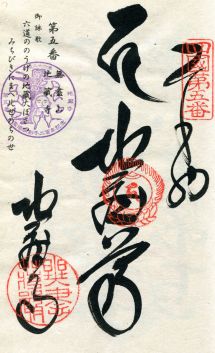 四國第五番
奉納
地蔵尊
地蔵寺
第五番
無盡山
地蔵寺
御詠歌
六道ののうげの地蔵大ぼさつ
みちびきたまへ此世のちの世